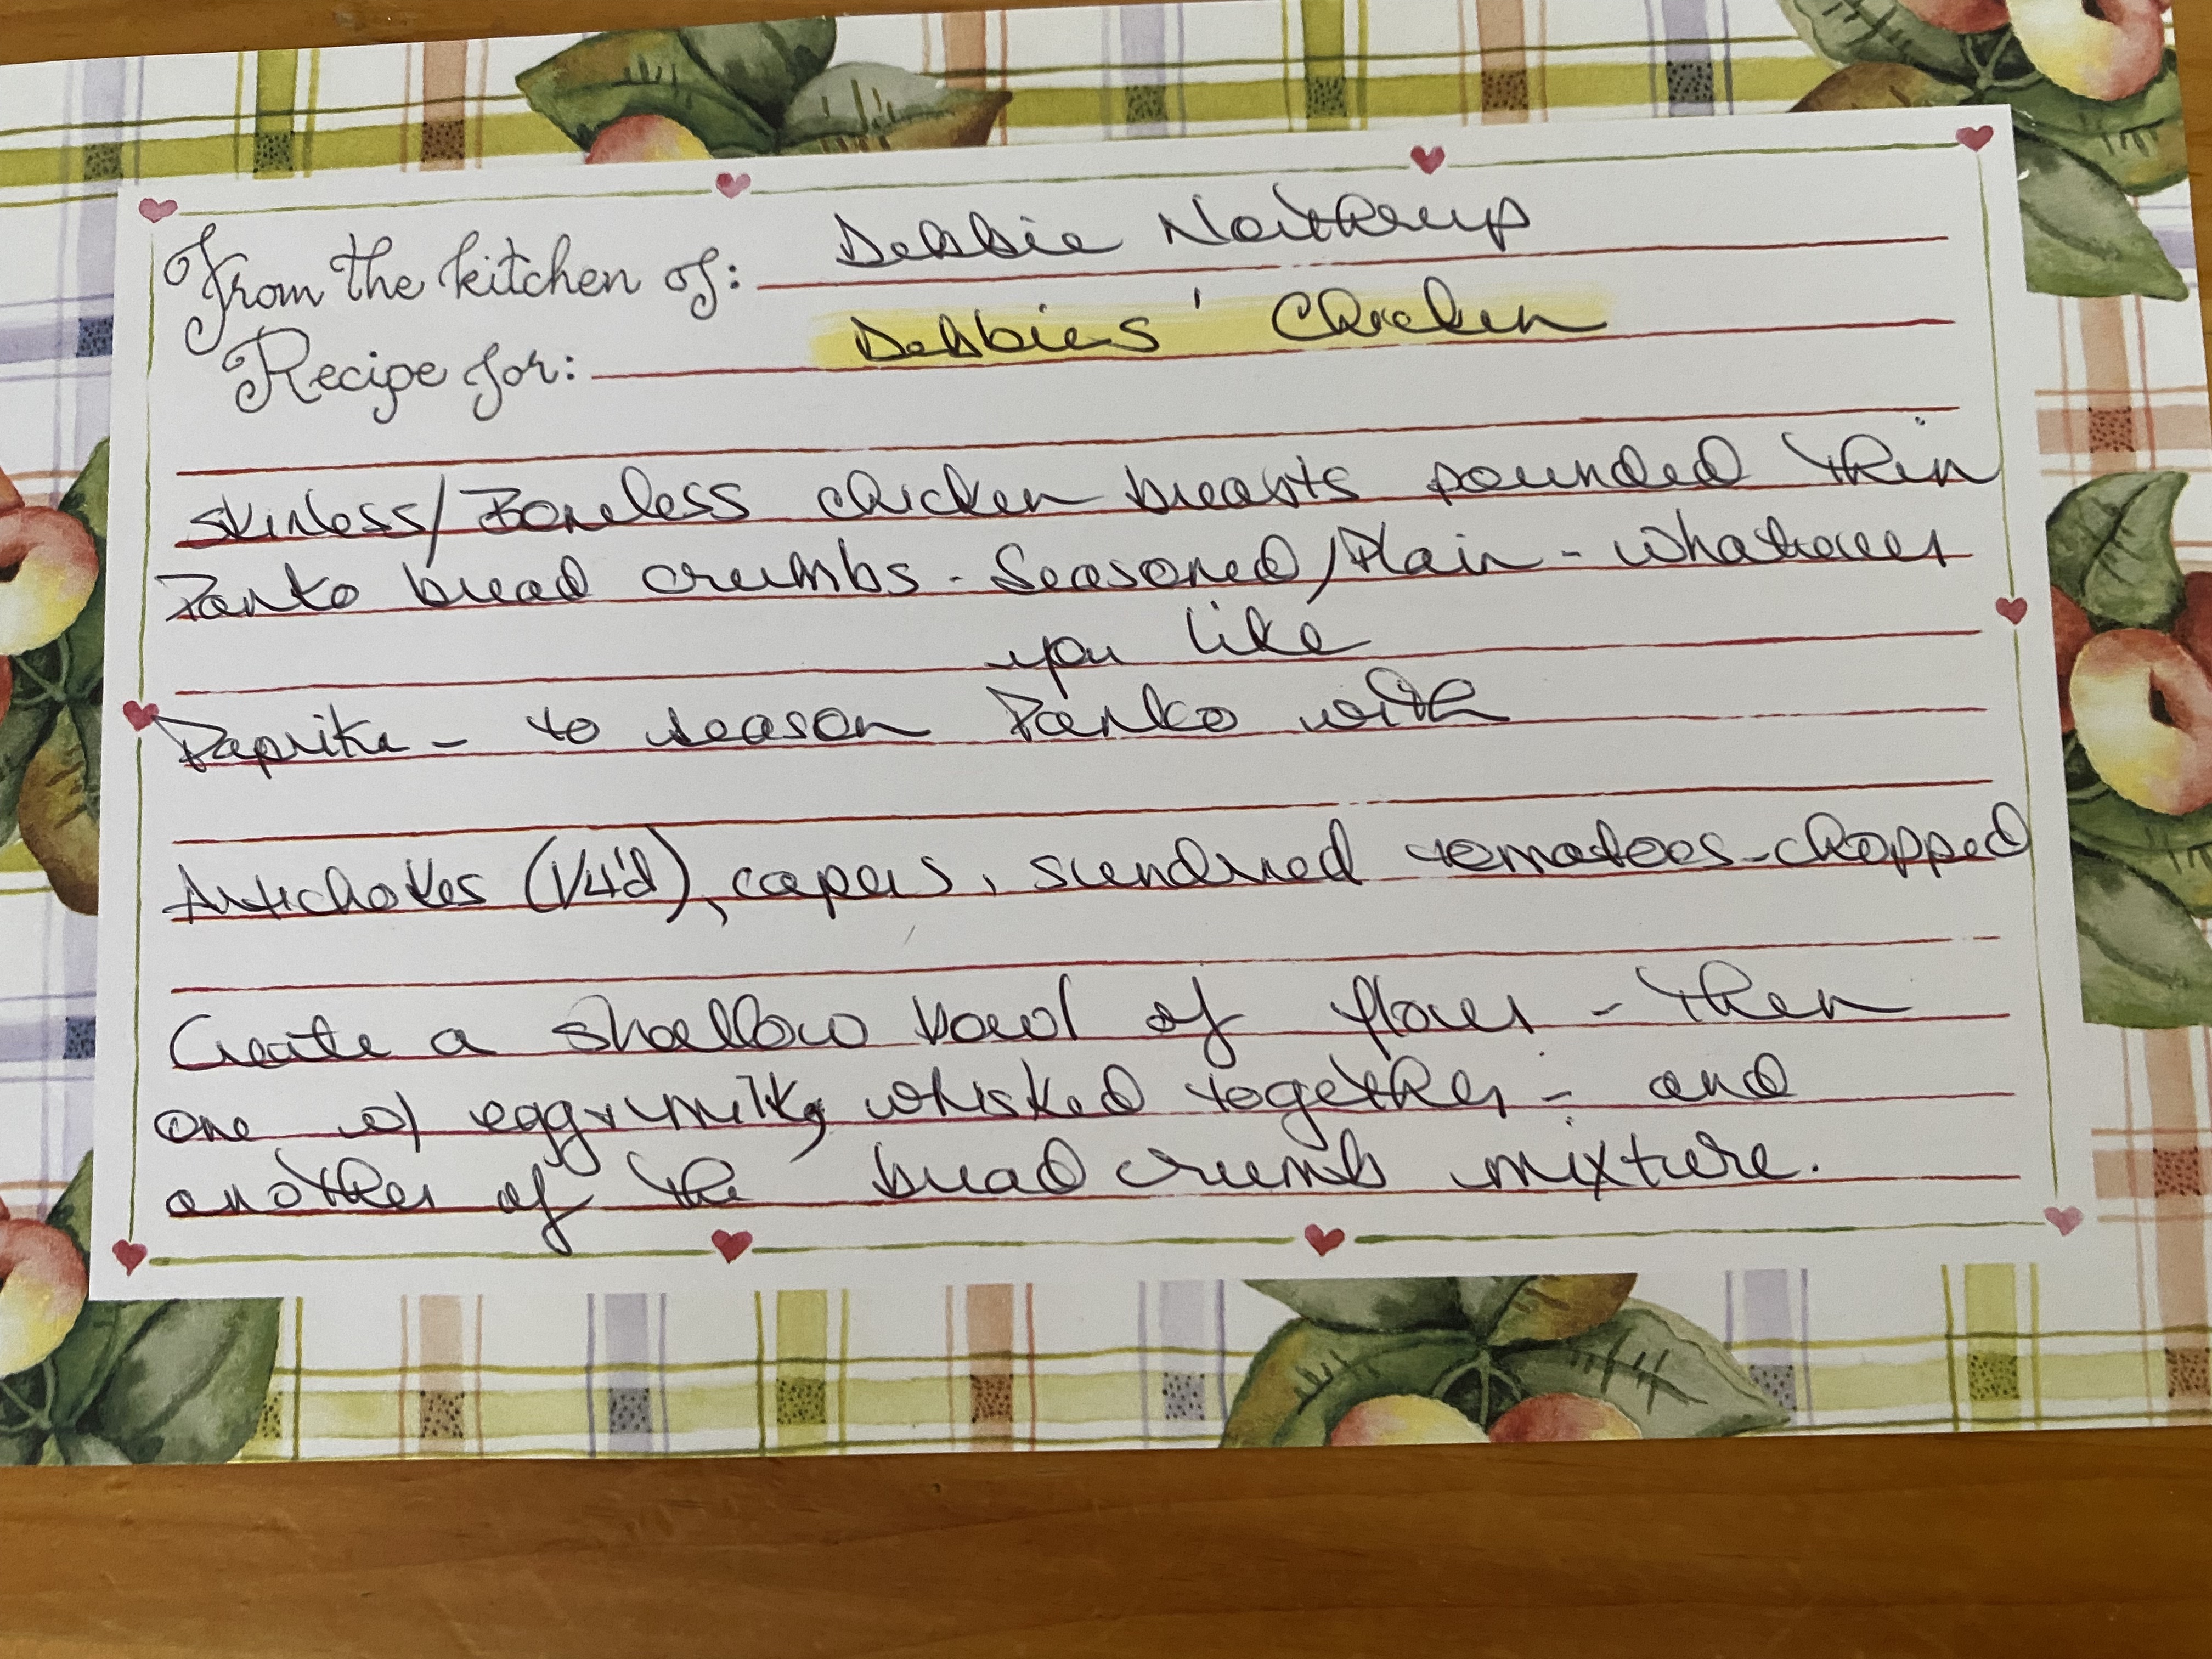 From the kitchen of: Debbie Northrup
Recipe for: Debbies' Chicken
skinless/Boneless chicken breasts pounded thin
Panko bread crumbs - Seasoned/Plain - whatever
you like
Paprika - to season Panko with
Artichokes (1/4'd), capers, sundried tomatoes - chopped
Create a shallow bowl of flour - then
one w/ egg + milk, whisked together - and
another of the bread crumb mixture.